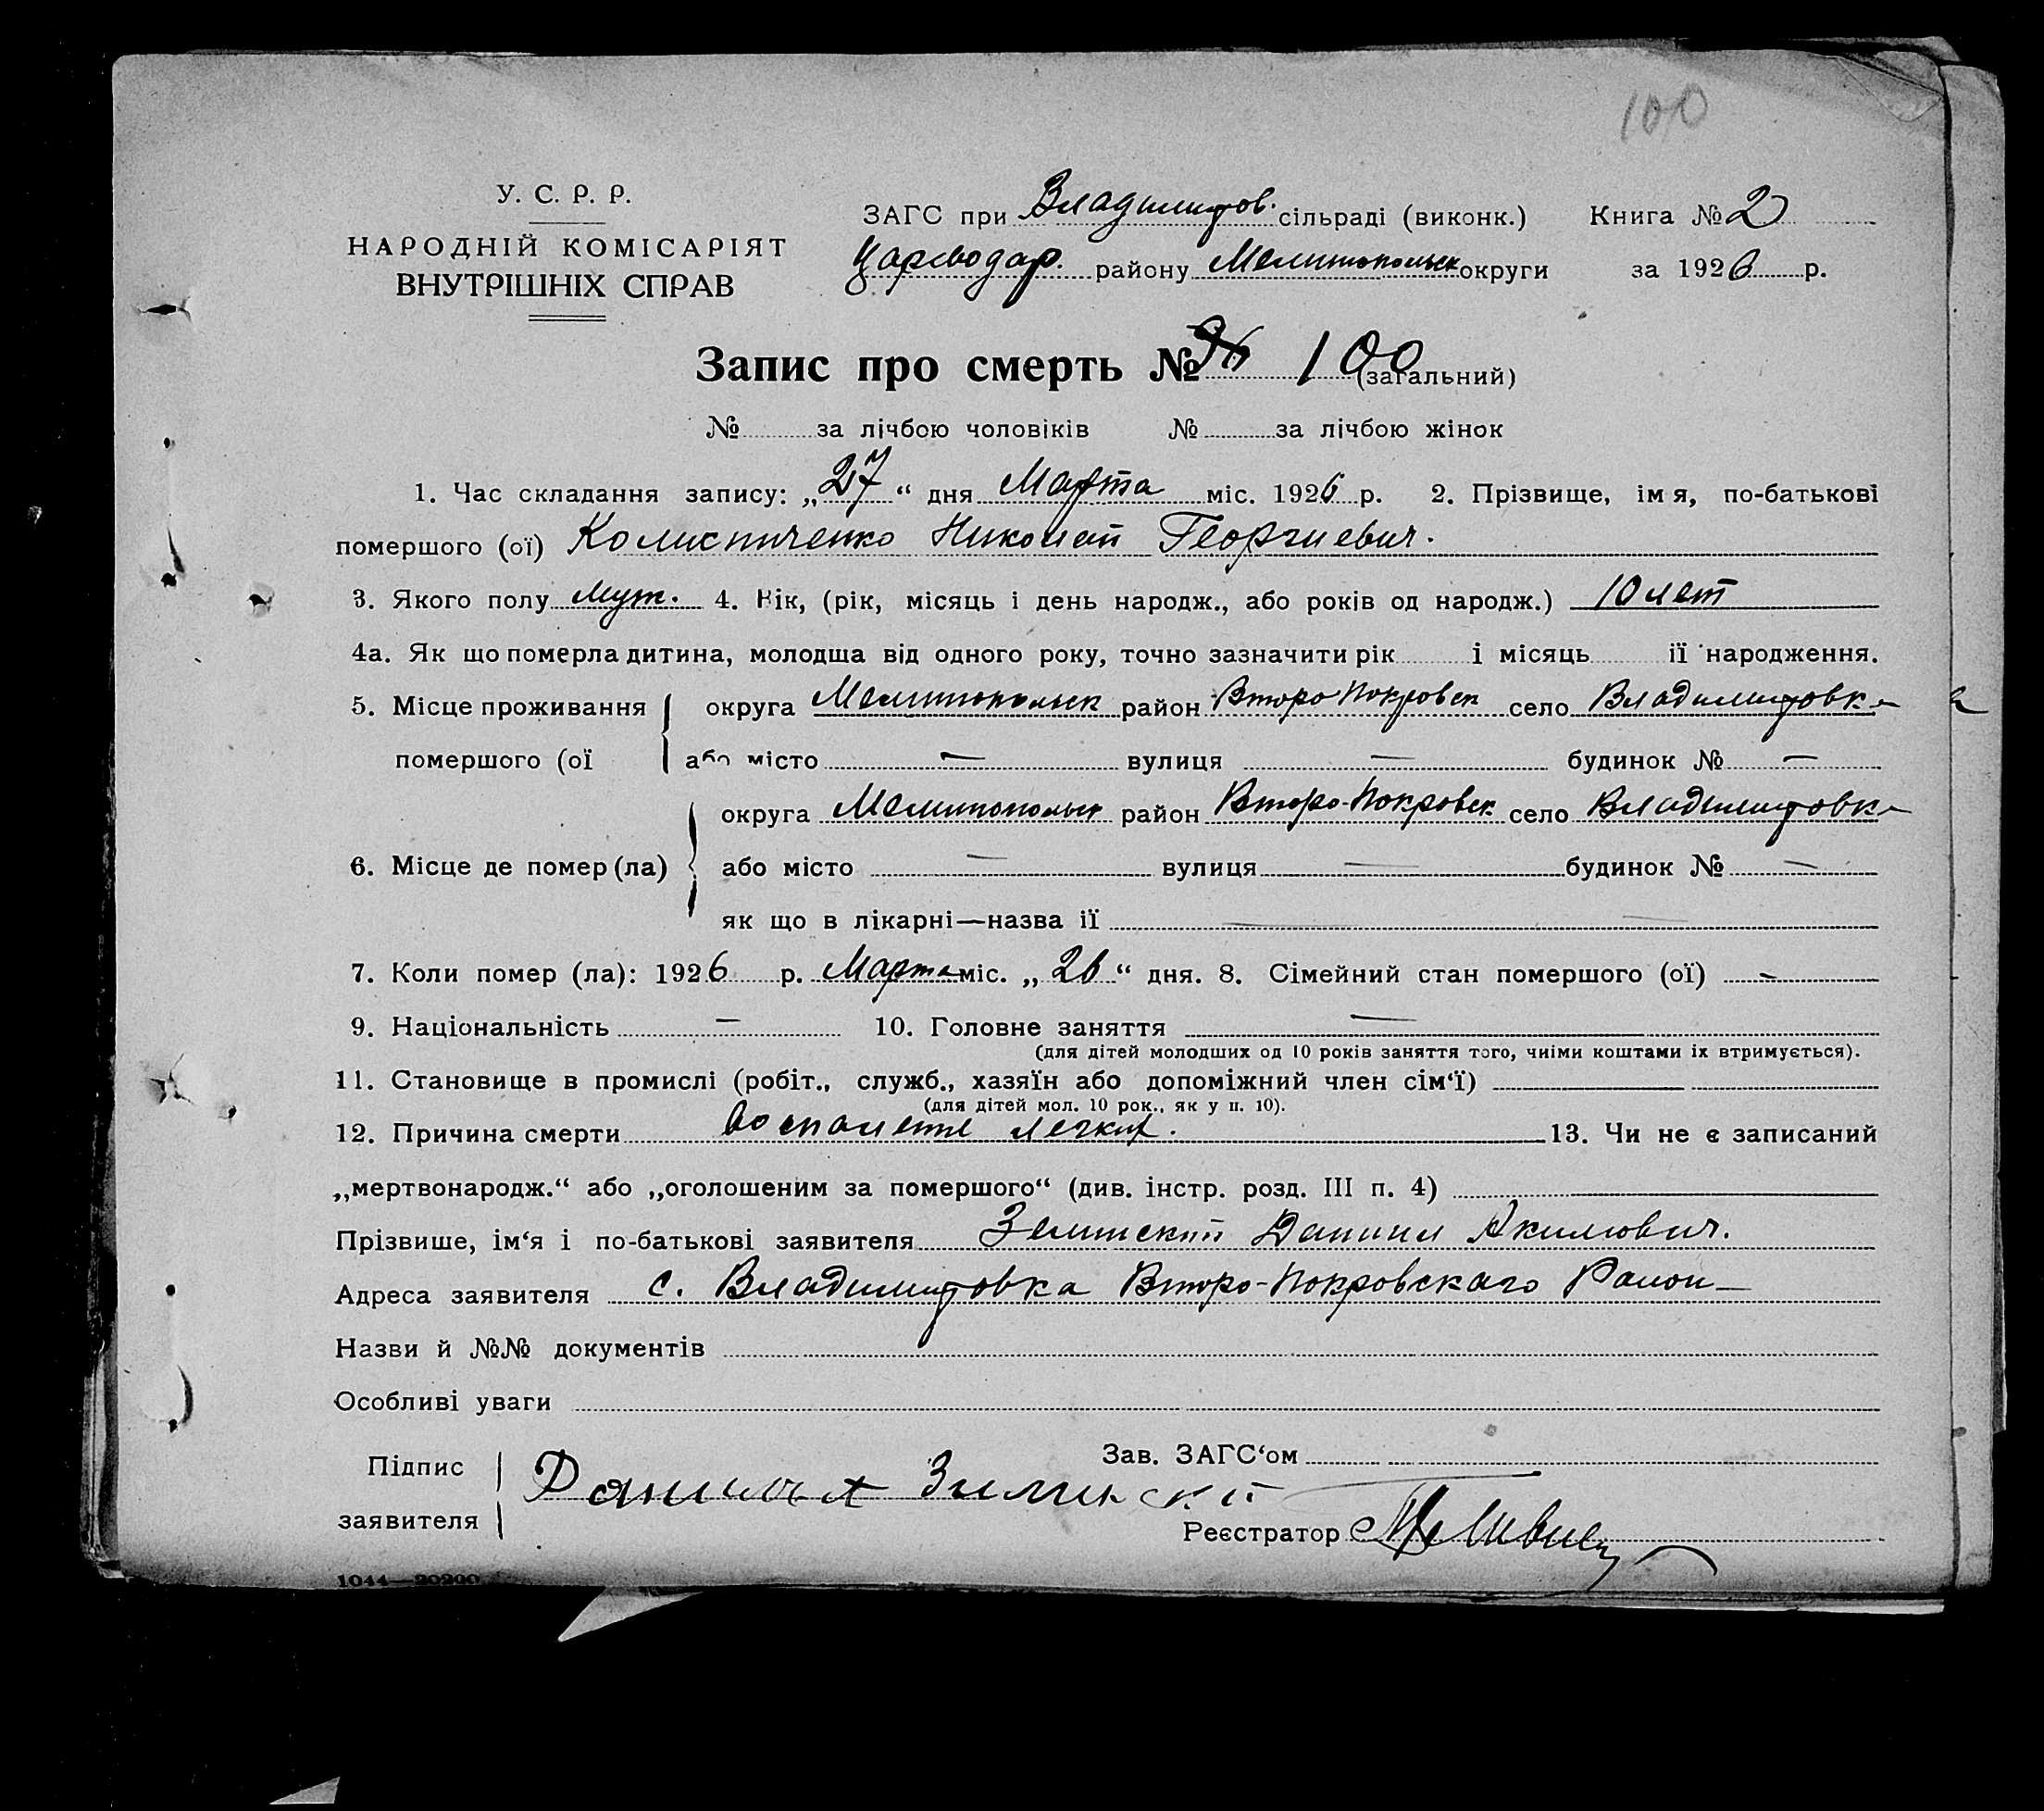 100
У. С. Р. Р.
НАРОДНІЙ КОМІСАРІЯТ
ВНУТРІШНІХ СПРАВ
ЗАГС при Владимиров. сільраді (виконк.) Книга № 2
району Мелитопольск округи за 1926 р.
Запис про смерть № 100 (загальний)
№ за лічбою чоловіків № за лічбою жінок
1. Час складання запису: „27“ дня Марта міс. 1926 р. 2. Прізвище, імя, по-батькові
помершого (ої) Николай Георгиевич.
3. Якого полу муж. 4. Вік, (рік, місяць і день народж., або років од народж.) 10 лет
4а. Як що померла дитина, молодша від одного року, точно зазначити рік і місяць її народження.
5. Місце проживання округа Мелитопольск район Второ-Покровск село Владимировка
помершого (ої або місто — вулиця — будинок № —
округа Мелитопольск район Второ-Покровск село Владимировка
6. Місце де помер (ла) або місто — вулиця — будинок № —
як що в лікарні—назва її —
7. Коли помер (ла): 1926 р. Марта міс. „26“ дня. 8. Сімейний стан помершого (ої) —
9. Національність — 10. Головне заняття —
(для дітей молодших од 10 років заняття того, чиїми коштами їх втримується).
11. Становище в промислі (робіт., служб., хазяїн або допоміжний член сім‘ї)
(для дітей мол. 10 рок., як у п. 10).
12. Причина смерти воспаление легких. 13. Чи не є записаний
„мертвонародж.“ або „оголошеним за помершого“ (див. інстр. розд. III п. 4)
Прізвише, ім‘я і по-батькові заявителя Даниил
Адреса заявителя с. Владимировка Второ-Покровского Район
Назви й №№ документів
Особливі уваги
Підпис
заявителя
Зав. ЗАГС‘ом
Реєстратор
1044—20200